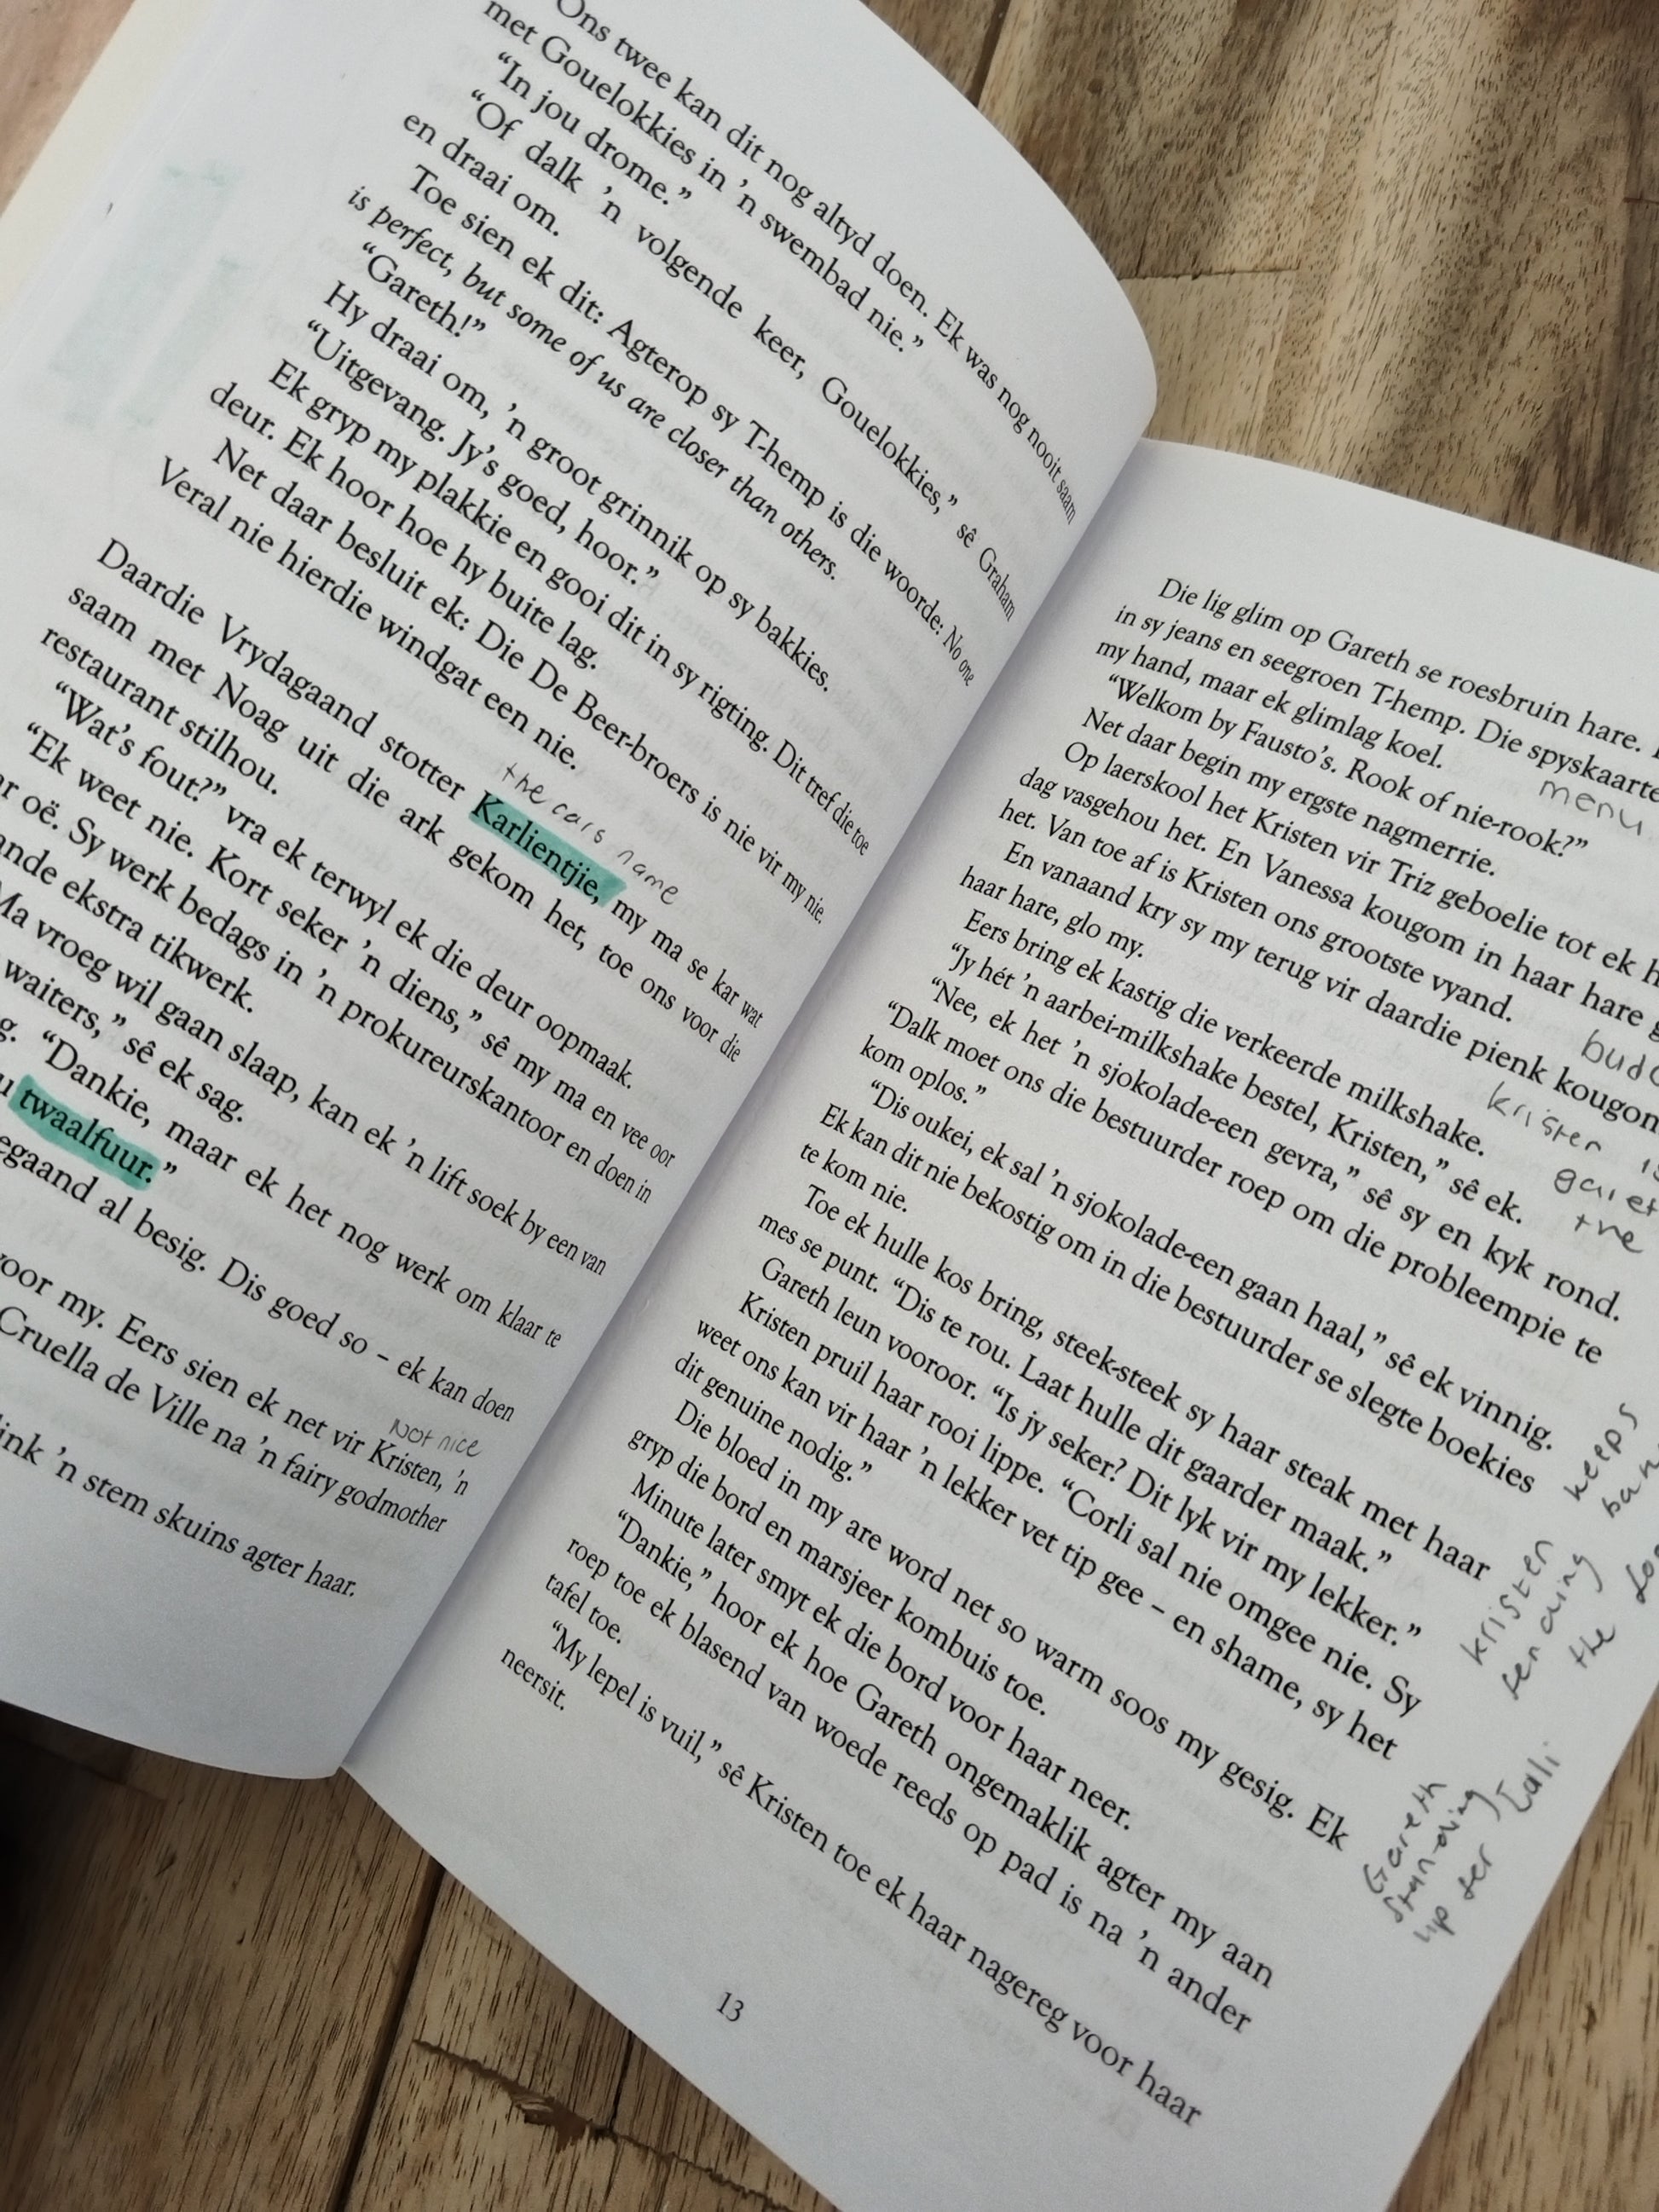 Ons twee kan dit nog altyd doen. Ek was nog nooit saam
met Gouelokkies in ’n swembad nie.”
“In jou drome.”
“Of dalk ’n volgende keer, Gouelokkies,” sê Graham
en draai om.
Toe sien ek dit: Agterop sy T-hemp is die woorde: No one
is perfect, but some of us are closer than others.
“Gareth!”
Hy draai om, ’n groot grinnik op sy bakkies.
“Uitgevang. Jy’s goed, hoor.”
Ek gryp my plakkie en gooi dit in sy rigting. Dit tref die toe
deur. Ek hoor hoe hy buite lag.
Net daar besluit ek: Die De Beer-broers is nie vir my nie.
Veral nie hierdie windgat een nie.
the cars name
Daardie Vrydagaand stotter Karlientjie, my ma se kar wat
saam met Noag uit die ark gekom het, toe ons voor die
restaurant stilhou.
“Wat’s fout?” vra ek terwyl ek die deur oopmaak.
“Ek weet nie. Kort seker ’n diens,” sê my ma en vee oor
oë. Sy werk bedags in ’n prokureurskantoor en doen in
ekstra tikwerk.
Ma vroeg wil gaan slaap, kan ek ’n lift soek by een van
waiters,” sê ek sag.
“Dankie, maar ek het nog werk om klaar te
twaalfuur.”
al besig. Dis goed so – ek kan doen
voor my. Eers sien ek net vir Kristen, ’n
not nice
Cruella de Ville na ’n fairy godmother
’n stem skuins agter haar.
Die lig glim op Gareth se roesbruin hare.
in sy jeans en seegroen T-hemp. Die spyskaarte
menu
my hand, maar ek glimlag koel.
“Welkom by Fausto’s. Rook of nie-rook?”
Net daar begin my ergste nagmerrie.
Op laerskool het Kristen vir Triz geboelie tot ek
dag vasgehou het. En Vanessa kougom in haar hare
het. Van toe af is Kristen ons grootste vyand.
En vanaand kry sy my terug vir daardie pienk kougom
haar hare, glo my.
Eers bring ek kastig die verkeerde milkshake.
“Jy hét ’n aarbei-milkshake bestel, Kristen,” sê ek.
“Nee, ek het ’n sjokolade-een gevra,” sê sy en kyk rond.
“Dalk moet ons die bestuurder roep om die probleempie te
kom oplos.”
“Dis oukei, ek sal ’n sjokolade-een gaan haal,” sê ek vinnig.
Ek kan dit nie bekostig om in die bestuurder se slegte boekies
te kom nie.
Toe ek hulle kos bring, steek-steek sy haar steak met haar
mes se punt. “Dis te rou. Laat hulle dit gaarder maak.”
Gareth leun vooroor. “Is jy seker? Dit lyk vir my lekker.”
Kristen pruil haar rooi lippe. “Corli sal nie omgee nie. Sy
weet ons kan vir haar ’n lekker vet tip gee – en shame, sy het
dit genuine nodig.”
Die bloed in my are word net so warm soos my gesig. Ek
gryp die bord en marsjeer kombuis toe.
Minute later smyt ek die bord voor haar neer.
“Dankie,” hoor ek hoe Gareth ongemaklik agter my aan
roep toe ek blasend van woede reeds op pad is na ’n ander
tafel toe.
“My lepel is vuil,” sê Kristen toe ek haar nagereg voor haar
neersit.
kristen
the
kristen keeps
sending
the
Gareth
standing
up for
13